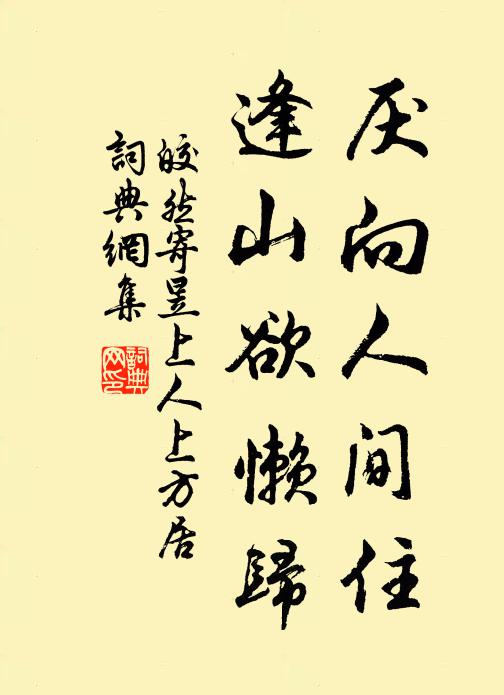 厌向人间住
逢山欲懒歸
皎然寄昱上人上方居
詞典網集
詞典网印